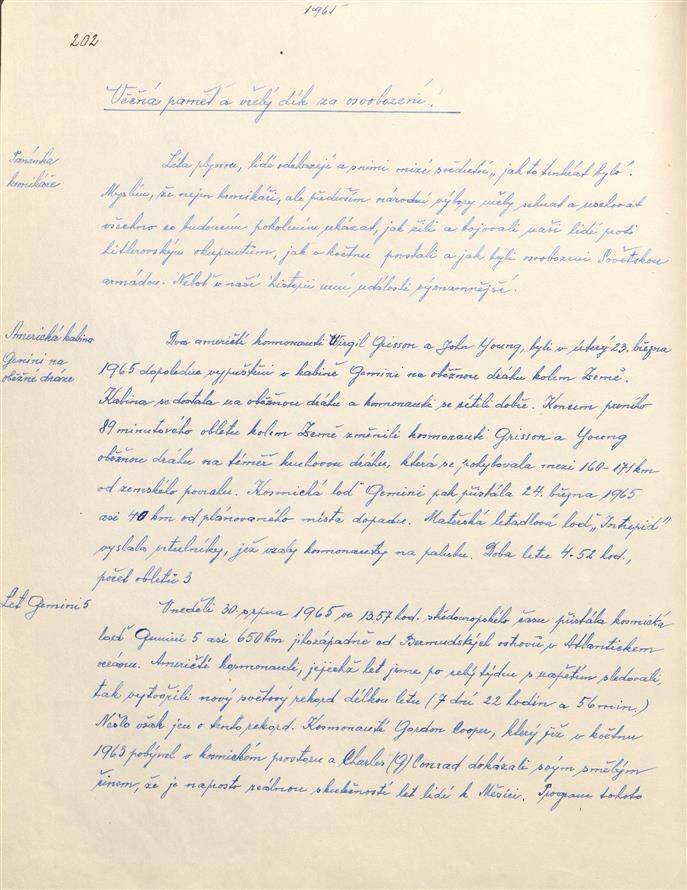 1965
202
Věčná paměť a vřelý dík za osvobození!
Poznámka
kronikáře
Léta plynou, lidé odcházejí a s nimi mizí svědectví „jak to tenkrát bylo".
Myslím, že nejen kronikáři, ale především národní výbory měly sehnat a uschovat
všechno co budoucím pokolením ukázat, jak žili a bojovali naši lidé proti
hitlerovským okupantům, jak v květnu povstali a jak byli osvobozeni Sovětskou
armádou. Neboť v naší historii není události významnější.
Americká kabina
Gemini na
oběžné dráze
Dva američtí kosmonauti Virgil Grisson a John Young, byli v úterý 23. března
1965 dopoledne vypuštěni v kabině Gemini na oběžnou dráhu kolem Země.
Kabina se dostala na oběžnou dráhu a kosmonauti se cítili dobře. Koncem prvního
89 minutového obletu kolem Země změnili kosmonauti Grisson a Young
oběžnou dráhu na téměř kruhovou dráhu, která se pohybovala mezi 160-171 km
od zemského povrchu. Kosmická loď Gemini pak přistála 24. března 1965
asi 40 km od plánovaného místa dopadu. Mateřská letadlová loď „Intrepid"
vyslala vrtulníky, jež vzaly kosmonauty na palubu. Doba letu 4-52 hod.,
počet obletů 3
Let Gemini 5
V neděli 30. srpna 1965 ve 13.57 hod. středoevropského času přistála kosmická
loď Gemini 5 asi 650 km jihozápadně od Bermudských ostrovů v Atlantickém
oceánu. Američtí kosmonauti, jejichž let jsme po celý týden s napětím sledovali,
tak vytvořili nový světový rekord délkou letu (7 dní 22 hodin a 56 min.)
Nešlo však jen o tento rekord. Kosmonauti Gordon Cooper, který již v květnu
1963 pobýval v kosmickém prostoru a Charles Conrad dokázali svým smělým
činem, že je naprosto reálnou skutečností let lidí k Měsíci. Program tohoto